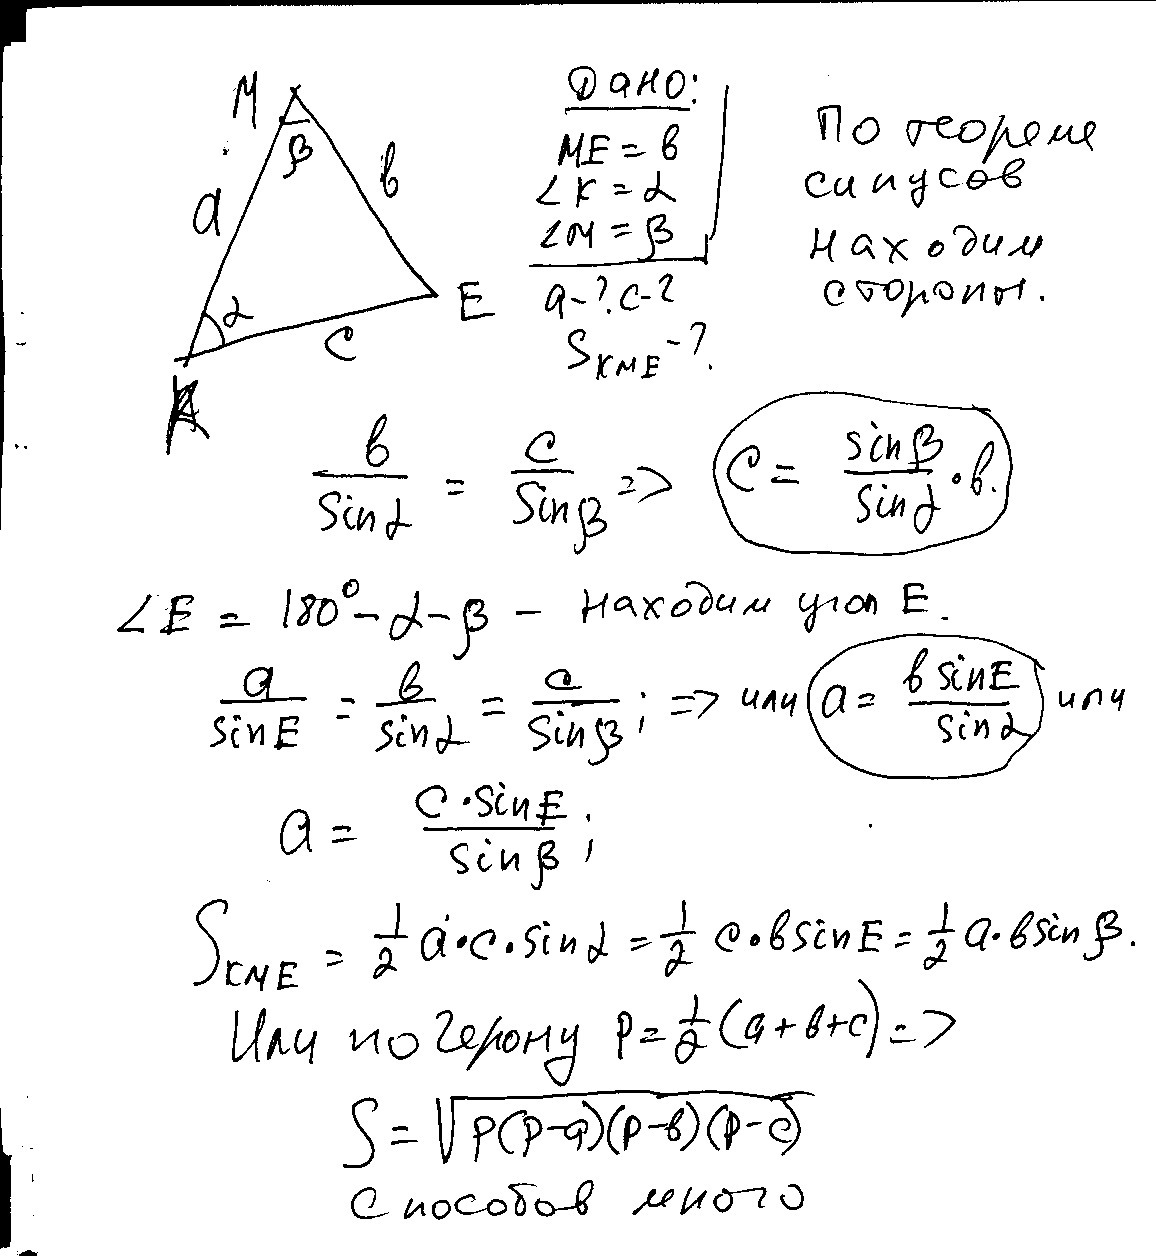 M
β
a
в
α
c
E
K
Дано:
ME = в
∠K = α
∠M = β
a-? c-?
S_KME -?
По теореме
синусов
находим
стороны.
в/sinα = c/sinβ => c = sinβ/sinα · в.
∠E = 180° - α - β - находим угол E.
a/sinE = в/sinα = c/sinβ; => или a = в sinE/sinα или
a = c·sinE/sinβ;
S_KME = 1/2 a·c·sinα = 1/2 c·в sinE = 1/2 a·в sinβ.
Или по Герону p = 1/2 (a+в+c) =>
S = √p(p-a)(p-в)(p-c)
способов много